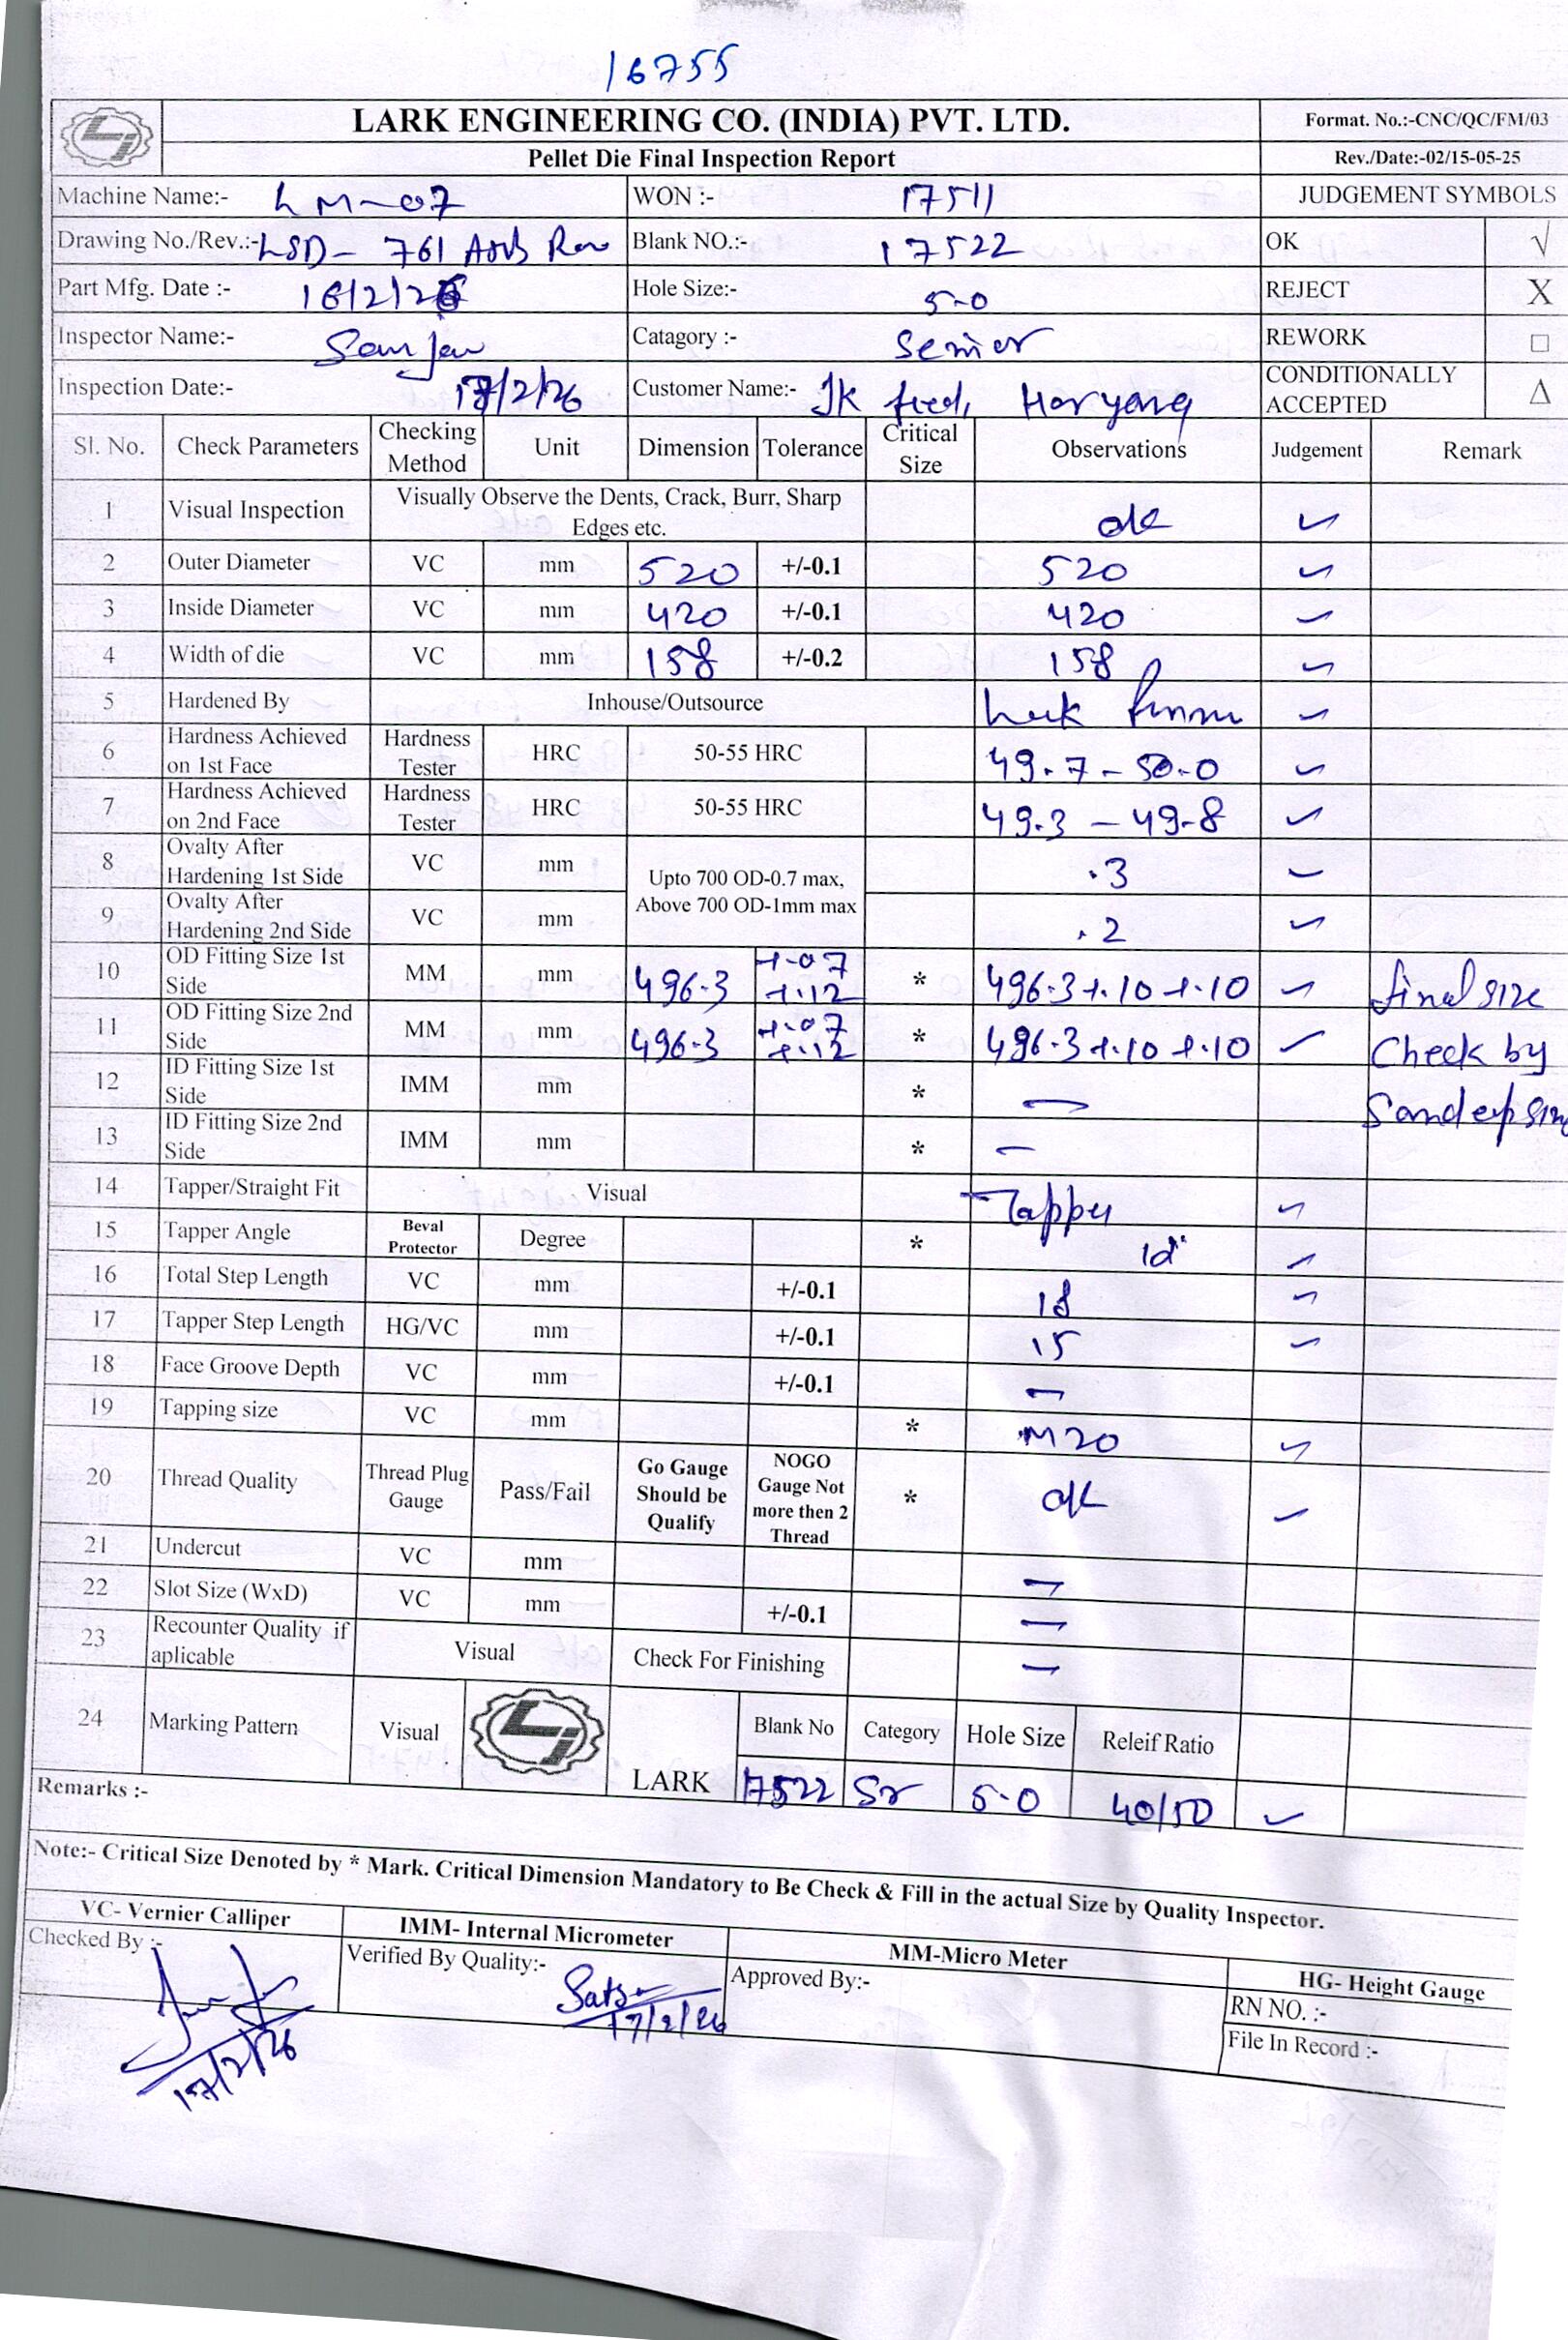 16755
LARK ENGINEERING CO. (INDIA) PVT. LTD. Format. No.:-CNC/QC/FM/03
Pellet Die Final Inspection Report Rev./Date:-02/15-05-25
Machine Name:- LM-07 WON :- 17511 JUDGEMENT SYMBOLS
Drawing No./Rev.:- LSD- 761 Blank NO.:- 17522 OK √
Part Mfg. Date :- 16/2/26 Hole Size:- 5.0 REJECT X
Inspector Name:- Catagory :- Senior REWORK □
Inspection Date:- 17/2/26 Customer Name:- JK feed, Haryana CONDITIONALLY ACCEPTED Δ
Sl. No. Check Parameters Checking Method Unit Dimension Tolerance Critical Size Observations Judgement Remark
1 Visual Inspection Visually Observe the Dents, Crack, Burr, Sharp Edges etc. ok ✓
2 Outer Diameter VC mm 520 +/-0.1 520 ✓
3 Inside Diameter VC mm 420 +/-0.1 420 ✓
4 Width of die VC mm 158 +/-0.2 158 ✓
5 Hardened By Inhouse/Outsource ✓
6 Hardness Achieved on 1st Face Hardness Tester HRC 50-55 HRC 49.7 - 50.0 ✓
7 Hardness Achieved on 2nd Face Hardness Tester HRC 50-55 HRC 49.3 - 49.8 ✓
8 Ovalty After Hardening 1st Side VC mm Upto 700 OD-0.7 max, Above 700 OD-1mm max .3 ✓
9 Ovalty After Hardening 2nd Side VC mm .2 ✓
10 OD Fitting Size 1st Side MM mm 496.3 +.07 +.12 * 496.3 +.10 +.10 ✓ final size
11 OD Fitting Size 2nd Side MM mm 496.3 +.07 +.12 * 496.3 +.10 +.10 ✓ Check by
12 ID Fitting Size 1st Side IMM mm * — Sandeep
13 ID Fitting Size 2nd Side IMM mm * —
14 Tapper/Straight Fit Visual Tapper ✓
15 Tapper Angle Beval Protector Degree * ✓
16 Total Step Length VC mm +/-0.1 18 ✓
17 Tapper Step Length HG/VC mm +/-0.1 15 ✓
18 Face Groove Depth VC mm +/-0.1 —
19 Tapping size VC mm * M20 ✓
20 Thread Quality Thread Plug Gauge Pass/Fail Go Gauge Should be Qualify NOGO Gauge Not more then 2 Thread * ok ✓
21 Undercut VC mm —
22 Slot Size (WxD) VC mm +/-0.1 —
23 Recounter Quality if aplicable Visual Check For Finishing —
24 Marking Pattern Visual LARK Blank No Category Hole Size Releif Ratio
17522 Sr 5.0 40/50 ✓
Remarks :-
Note:- Critical Size Denoted by * Mark. Critical Dimension Mandatory to Be Check & Fill in the actual Size by Quality Inspector.
VC- Vernier Calliper IMM- Internal Micrometer MM-Micro Meter HG- Height Gauge
Checked By :- Verified By Quality:- Approved By:- RN NO. :-
17/2/26 17/2/26 File In Record :-